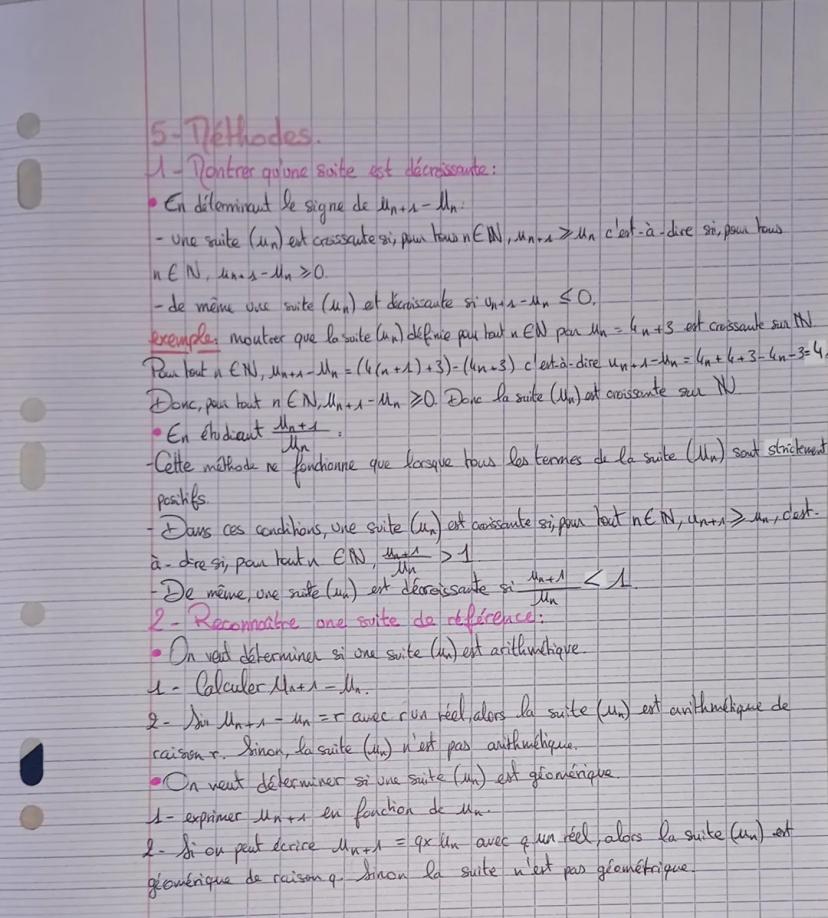 5-Méthodes.
1-Montrer qu'une suite est décroissante:
• En déterminant le signe de Un+1 - Un:
- une suite (un) est croissante si, pour tous n ∈ ℕ, un+1 ⩾ un c'est-à-dire si, pour tous
n ∈ ℕ, un+1 - un ⩾ 0.
- de même une suite (un) est décroissante si un+1 - un ⩽ 0.
exemple: montrer que la suite (un) définie pour tout n ∈ ℕ par un = 4n+3 est croissante sur ℕ
Pour tout n ∈ ℕ, un+1 - un = (4(n+1)+3)-(4n+3) c'est-à-dire un+1-un = 4n+4+3-4n-3=4.
Donc, pour tout n ∈ ℕ, un+1 - un ⩾ 0. Donc la suite (un) est croissante sur ℕ
• En étudiant un+1/un :
-Cette méthode ne fonctionne que lorsque tous les termes de la suite (un) sont strictement
positifs.
- Dans ces conditions, une suite (un) est croissante si, pour tout n ∈ ℕ, un+1 ⩾ un, c'est-
à-dire si, pour tout n ∈ ℕ, un+1/un > 1
- De même, une suite (un) est décroissante si un+1/un < 1
2-Reconnaître une suite de référence:
• On veut déterminer si une suite (un) est arithmétique
1- Calculer un+1 - un.
2- Si un+1 - un = r avec r un réel, alors la suite (un) est arithmétique de
raison r. Sinon, la suite (un) n'est pas arithmétique.
• On veut déterminer si une suite (un) est géomérique.
1- exprimer un+1 en fonction de un.
2- Si on peut écrire un+1 = q× un avec q un réel, alors la suite (un) est
géomérique de raison q. Sinon la suite n'est pas géométrique.